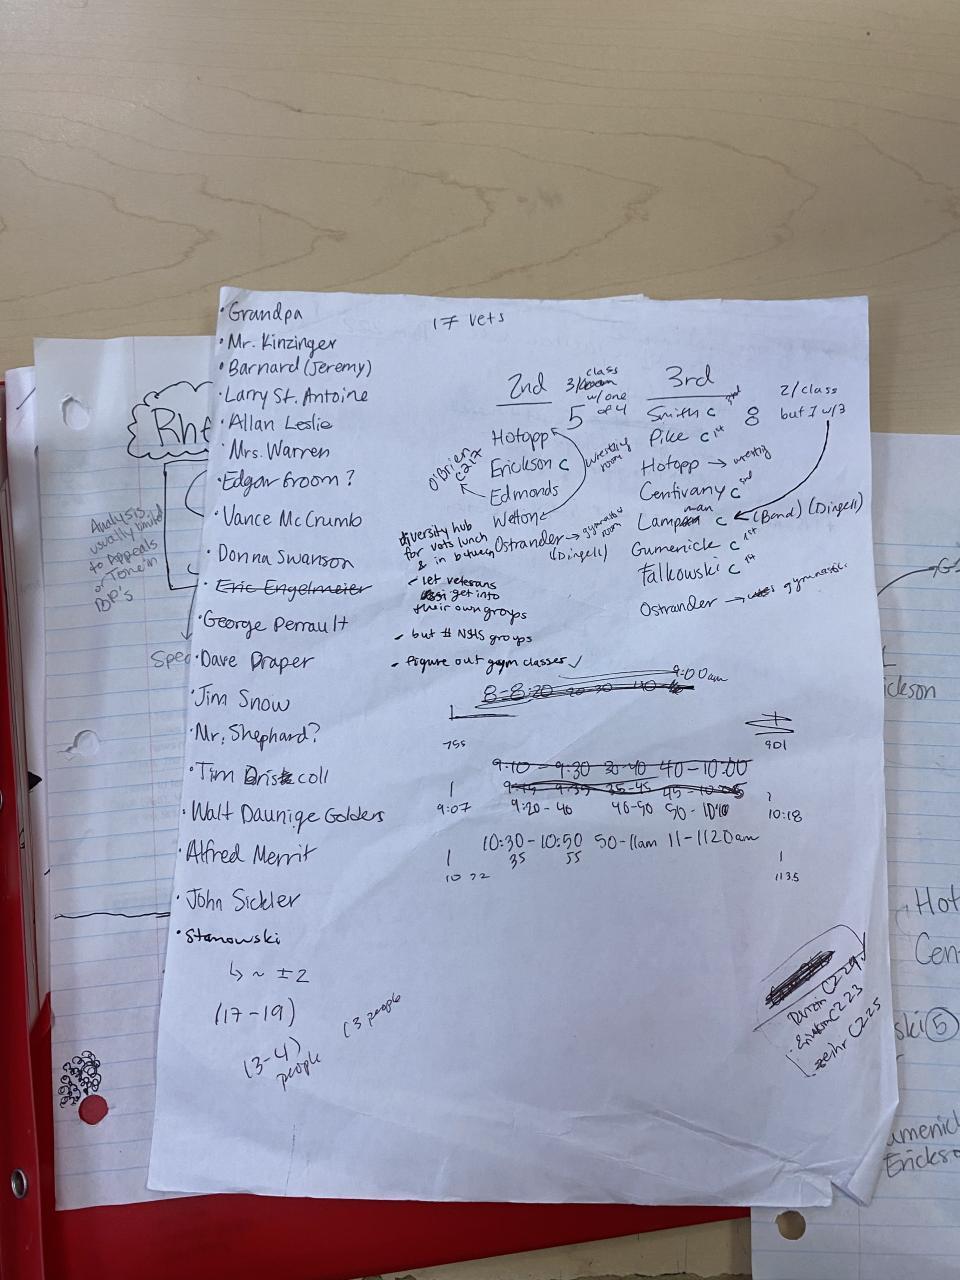 • Grandpa
• Mr. Kinzinger
• Barnard (Jeremy)
• Larry St. Antoine
• Allan Leslie
• Mrs. Warren
• Edgar Groom?
• Vance McCrumb
• Donna Swanson
• Eric Engelmeier
• George Perrault
• Dave Draper
• Jim Snow
• Mr. Shephard?
• Tim Driscoll
• Walt Daunige Golders
• Alfred Merrit
• John Sickler
• Stanowski
↳ ~ ±2
(17-19)
(3-4)
people
(3 people
17 vets
2nd
3/class
w/one
of 4
5
Hotopp
Erickson C
Edmonds
Welton
Ostrander → gymnastics
room
(Dingell)
O'Brien
C217
wrestling
room
3rd
8
2/class
but 1 w/3
Smith C 2nd
Pike C 1st
Hotopp →
Centivany C 2nd
Lampman C ← (Bond) (Dingell)
Gumenick C 1st
Falkowski C 1st
Ostrander → gymnastic
diversity hub
for vets lunch
& in between
- let veterans
get into
their own groups
- but # NSHS groups
- figure out gym classes ✓
8-8:20 20-30 40
9:00am
755
901
9:10 - 9:30 30-40 40-10:00
9:15 9:35 35-45 45-10:05
9:07
9:20-40 40-50 50-10:10
10:18
10:30-10:50 50-11am 11-1120am
35 55
10 22
1135
C229
C223
C225
Rh
Analysis
usually build
to Appeals
or Tone in
BP's
Spec
ickson
Hot
Cen
ski 5
umenick
Erickso